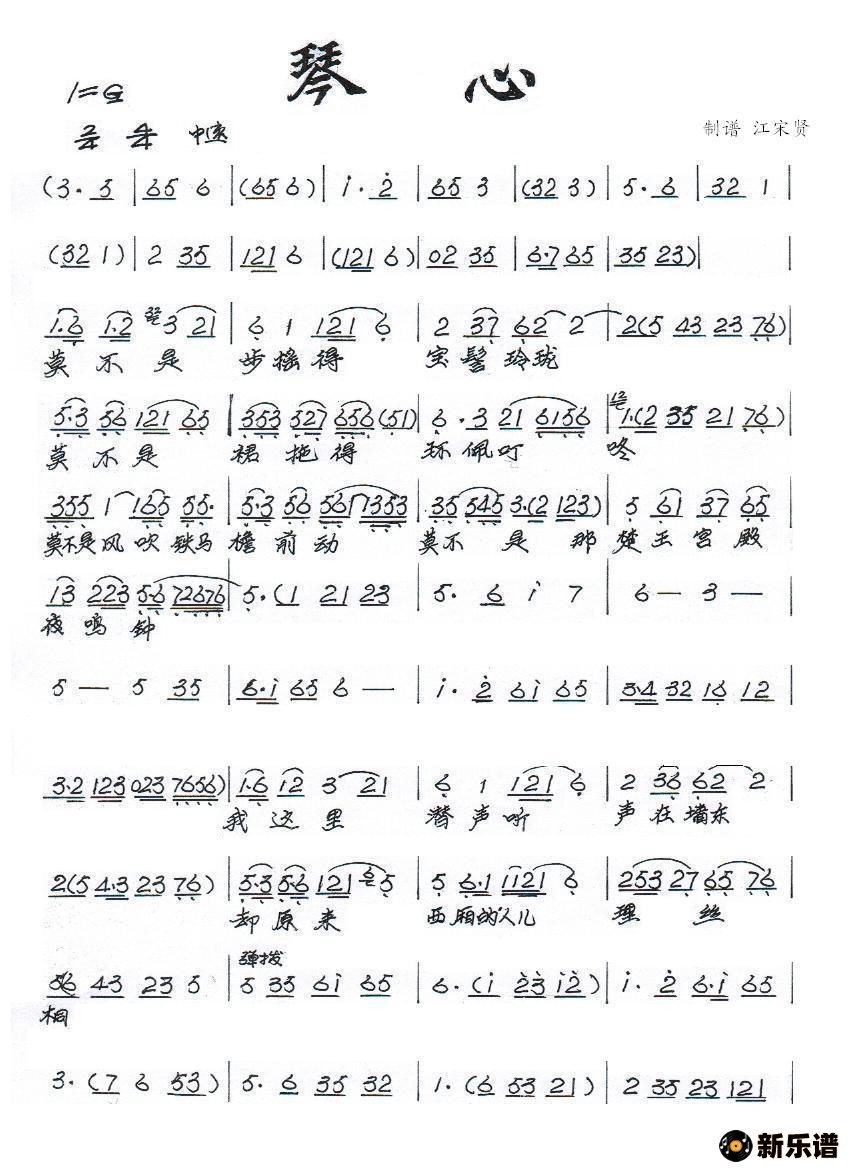 琴 心
1=G
2/4 4/4 中速
制谱 江宋贤
(3· 5 | 65 6 | (65 6) | i· 2 | 65 3 | (32 3) | 5· 6 | 32 1 |
(32 1) | 2 35 | 121 6 | (121 6) | 02 35 | 6·765 | 35 23) |
1·6 1·2 3 21 | 6 1 121 6 | 2 37 62 2 | 2(5 43 23 76) |
莫 不 是 步摇得 宝髻玲珑
5·3 56 121 65 | 353 527 656 (51) | 6· 3 21 6156 | 1·(2 35 21 76) |
莫 不 是 裙拖得 环佩叮 咚
355 1 165 55· | 5·3 56 561 1353 | 35 545 3·(2 123) | 5 61 37 65 |
莫不是风吹铁马 檐前动 莫不是那 楚王宫殿
13 223 5·6 727676 | 5·(1 21 23 | 5· 6 i 7 | 6 — 3 — |
夜鸣钟
5 — 5 35 | 6·i 65 6 — | i· 2 6i 65 | 3·4 32 16 12 |
3·2 123 023 7656) | 1·6 12 3 21 | 6 1 121 6 | 2 36 62 2 |
我这里 潜声听 声在墙东
2(5 4·3 23 76) | 5·3 5·6 121 5 | 5 6·1 1121 6 | 253 27 65 76 |
却原来 西厢的人儿 理 丝
弹拨
56 43 23 5 | 5 35 6i 65 | 6·(i 23 i2) | i· 2 6·i 65 |
桐
3·(7 6 53) | 5· 6 35 32 | 1·(6 53 21) | 2 35 23 121 |
新乐谱